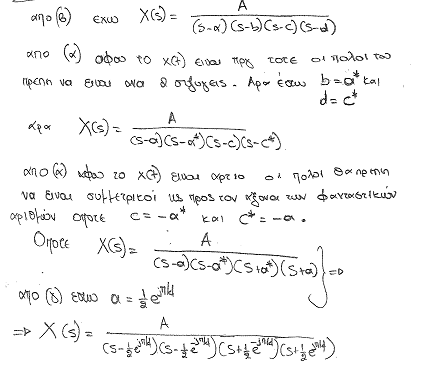 από (β) έχω X(s) = A / (s-a)(s-b)(s-c)(s-d)
από (α) αφου το x(t) ειναι πργ τοτε οι πολοι του
πρεπη να ειναι ανα 2 συζυγεις. Αρα έστω b = a* και
d = c*
άρα X(s) = A / (s-a)(s-a*)(s-c)(s-c*)
απο (α) αφου το x(t) ειναι αρτιο οι πολοι θα πρεπη
να ειναι συμετρικοί ως προς τον αξονα των φανταστικών
αριθμών οποτε c = -a* και c* = -a.
Οποτε X(s) = A / (s-a)(s-a*)(s+a*)(s+a) } =>
από (γ) έχω a = 1/2 e^{jπ/4}
=> X(s) = A / (s-1/2 e^{jπ/4})(s-1/2 e^{-jπ/4})(s+1/2 e^{-jπ/4})(s+1/2 e^{jπ/4})